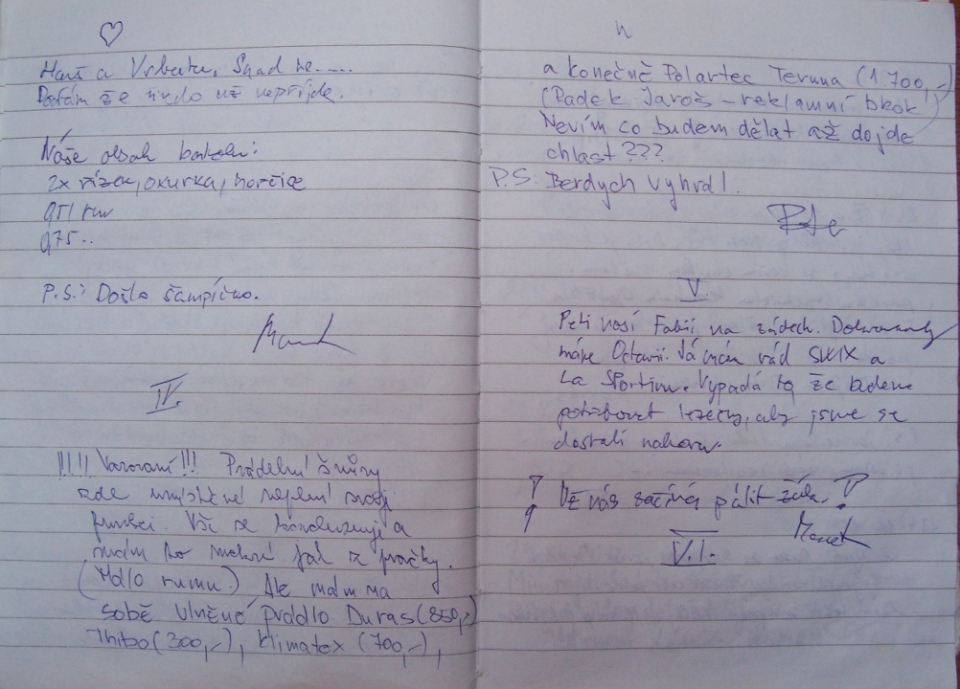 Hanč a Vrbata, Snad ne.....
Doufám že nikdo už nepřijde.
Náše obsah batohu:
2x řízek, okurka, hořčice
0,5 l rum
0,75..
P.S.: Došlo šampíčko.
Marek
IV.
!!!! Varování!!! Prádelní šňůry
zde umístěné neplní svoji
funkci. Vše se kondenzuje a
mám to mokré jak z pračky.
(Málo rumu.) Ale mám na
sobě vlněné prádlo Duras (850,-)
Thibo (300,-), Klimatex (700,-),
a konečně Polartec Teruna (1 700,-)
(Radek Jaroš – reklamní blok)
Nevím co budem dělat až dojde
chlast ???
P.S: Berdych vyhrál.
V.
Peti nosí Fabii na zádech. Dohromady
máme Octavii. Já mám rád SWIX a
La Sportivu. Vypadá to, že budeme
potřebovat lezečky, aby jsme se
dostali nahoru.
! Už nás začíná pálit žáha. !
Marek
V.I.